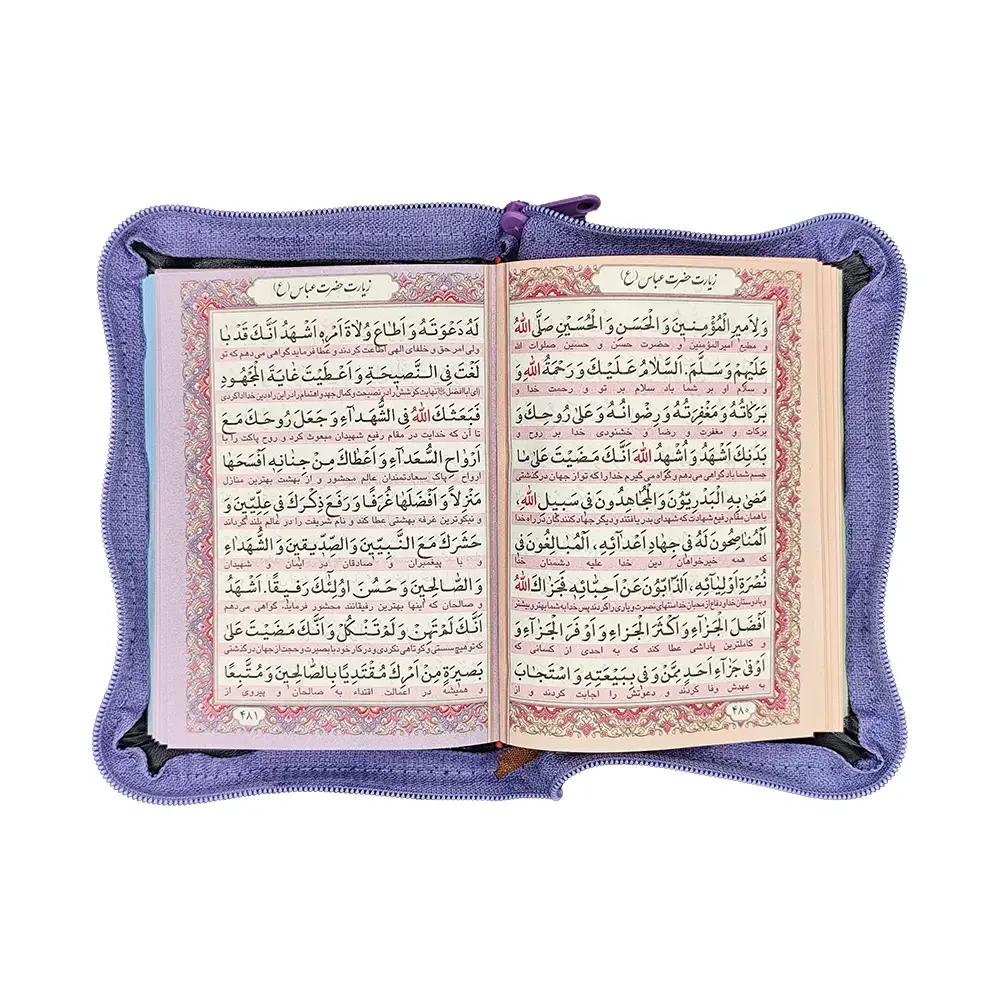 زیارت حضرت عباس (ع)
وَلِاَمیرِ الْمُؤْمِنینَ وَالْحَسَنِ وَالْحُسَیْنِ صَلَّی اللهُ
مطیع امیرالمؤمنین و حضرت حسن و حسین صلوات الله
عَلَیْهِمْ وَسَلَّمَ. اَلسَّلامُ عَلَیْکَ وَ رَحْمَةُ اللهِ وَ
و سلام او بر شما باد سلام بر تو و رحمت خدا و
بَرَکاتُهُ وَ مَغْفِرَتُهُ وَ رِضْوانُهُ وَ عَلی رُوحِکَ وَ
برکات و مغفرت و رضا و خشنودی خدا بر روح و
بَدَنِکَ اَشْهَدُ وَ اُشْهِدُ اللهَ اَنَّکَ مَضَیْتَ عَلی ما
جسم شما باد گواهی می دهم و گواه می گیرم خدا را که تو از جهان درگذشتی
مَضی بِهِ الْبَدْرِیُّونَ وَ الْمُجاهِدُونَ فی سَبیلِ اللهِ،
باهمان مقام رفیع شهادت که شهدای بدر یافتند و دیگر جهاد کنندگان در راه خدا
اَلْمُناصِحُونَ لَهُ فی جِهادِ اَعْدائِهِ، اَلْمُبالِغُونَ فی
که همه خیرخواهان دین خدا علیه دشمنان خدا
نُصْرَةِ اَوْلِیائِهِ، اَلذّابُّونَ عَنْ اَحِبّائِهِ فَجَزاکَ اللهُ
و با دوستان خدا و دفاع از محبان خدا منتهای نصرت و یاری را کردند پس خدا به شما بهتر و بیشتر
اَفْضَلَ الْجَزاءِ وَ اَکْثَرَ الْجَزاءِ وَ اَوْفَرَ الْجَزاءِ وَ
و کاملترین پاداشی عطا کند که به احدی از کسانی که
اَوْفی جَزاءِ اَحَدٍ مِمَّنْ وَفی بِبَیْعَتِهِ وَ اسْتَجابَ
به عهدش وفا کردند و دعوتش را اجابت کردند و از
۴۸۰
زیارت حضرت عباس (ع)
لَهُ دَعْوَتَهُ وَ اَطاعَ وُلاةَ اَمْرِهِ اَشْهَدُ اَنَّکَ قَدْ با
ولی امر حق و خلفای الهی اطاعت کردند و عطا فرماید گواهی می دهم که تو
لَغْتَ فِی النَّصیحَةِ وَ اَعْطَیْتَ غایَةَ الْمَجْهُودِ
فَبَعَثَکَ اللهُ فِی الشُّهَداءِ وَ جَعَلَ رُوحَکَ مَعَ
تا آن که خدایت در مقام رفیع شهیدان مبعوث کرد و روح پاکت را با
اَرْواحِ السُّعَداءِ وَ اَعْطاکَ مِنْ جِنانِهِ اَفْسَحَها
ارواح پاک سعادتمندان عالم محشور و از بهشت بهترین منازل
مَنْزِلاً وَ اَفْضَلَها غُرَفًا وَ رَفَعَ ذِکْرَکَ فی عِلِّیّینَ وَ
و نیکوترین غرفه بهشتی عطا کند و نام شریفت را در عالم بلند گرداند
حَشَرَکَ مَعَ النَّبِیّینَ وَ الصِّدّیقینَ وَ الشُّهَداءِ
و با پیغمبران و صادقان در ایمان و شهیدان
وَ الصّالِحینَ وَ حَسُنَ اُولئِکَ رَفیقًا. اَشْهَدُ
و صالحان که آینها بهترین رفیقانند محشور فرماید. گواهی می دهم
اَنَّکَ لَمْ تَهِنْ وَ لَمْ تَنْکُلْ وَ اَنَّکَ مَضَیْتَ عَلی
که تو هیچ سستی و کوتاهی نکردی و در کار خود با بصیرت و حجت از جهان درگذشتی
بَصیرَةٍ مِنْ اَمْرِکَ مُقْتَدِیًا بِالصّالِحینَ وَ مُتَّبِعًا
و همیشه در اعمالت اقتداء به صالحان و پیروی از
۴۸۱